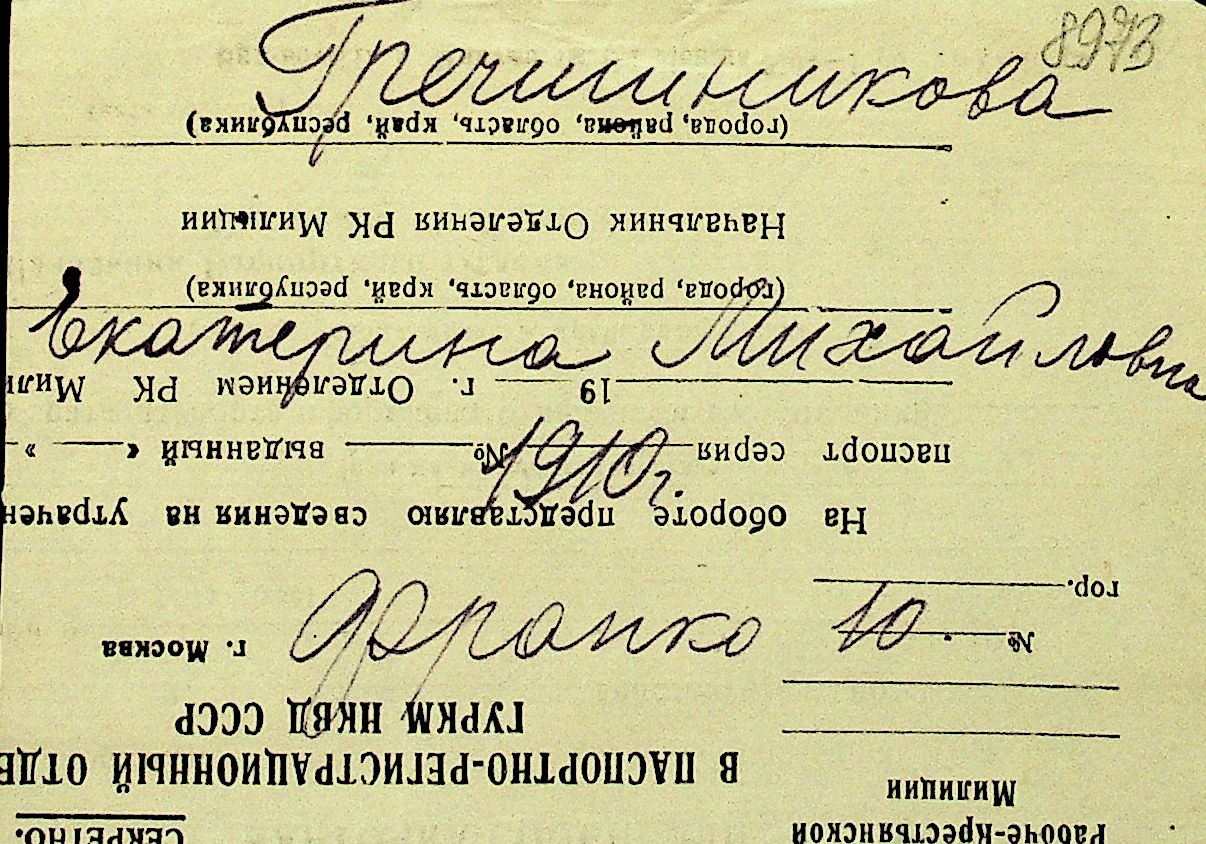 8973
Гречишникова
Екатерина Михайловна
1910 г.
Франко 10.
Рабоче-Крестьянской
Милиции
№
гор.
СЕКРЕТНО.
В ПАСПОРТНО-РЕГИСТРАЦИОННЫЙ ОТДЕ
ГУРКМ НКВД СССР
г. Москва
На обороте представляю сведения на утрачен
паспорт серия № выданный « »
19 г. Отделением РК Мили
(города, района, область, край, республика)
Начальник Отделения РК Милиции
(города, района, область, край, республика)